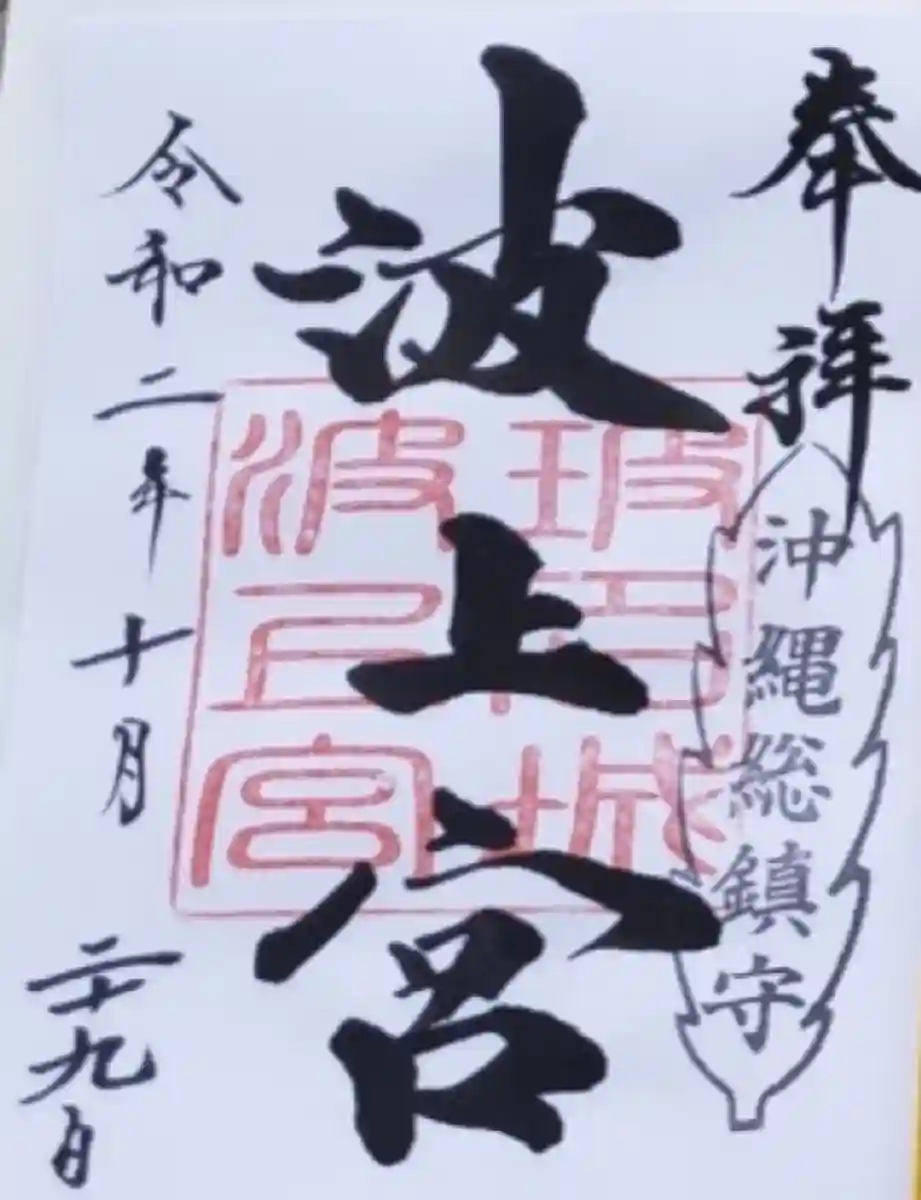 奉拝
沖縄総鎮守
波上宮
波上宮
令和二年十月二十九日